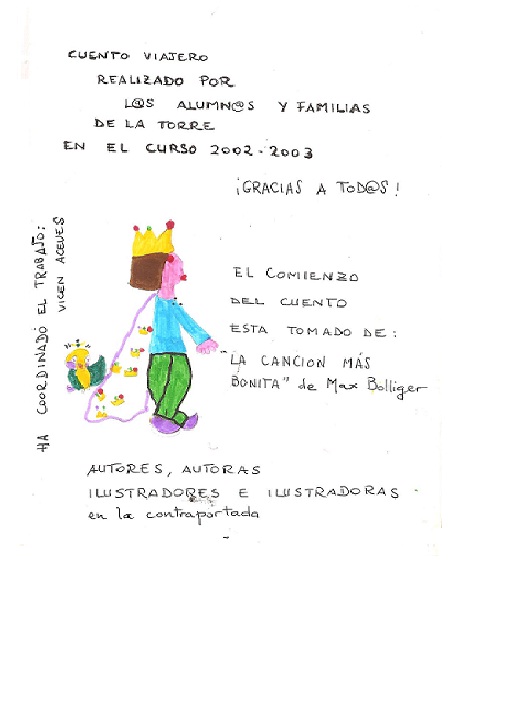 CUENTO VIAJERO
REALIZADO POR
L@S ALUMN@S Y FAMILIAS
DE LA TORRE
EN EL CURSO 2002-2003
¡GRACIAS A TOD@S!
HA COORDINADO EL TRABAJO:
VICEN ACEVES
EL COMIENZO
DEL CUENTO
ESTA TOMADO DE:
"LA CANCION MÁS
BONITA" de Max Bolliger
AUTORES, AUTORAS
ILUSTRADORES E ILUSTRADORAS
en la contraportada